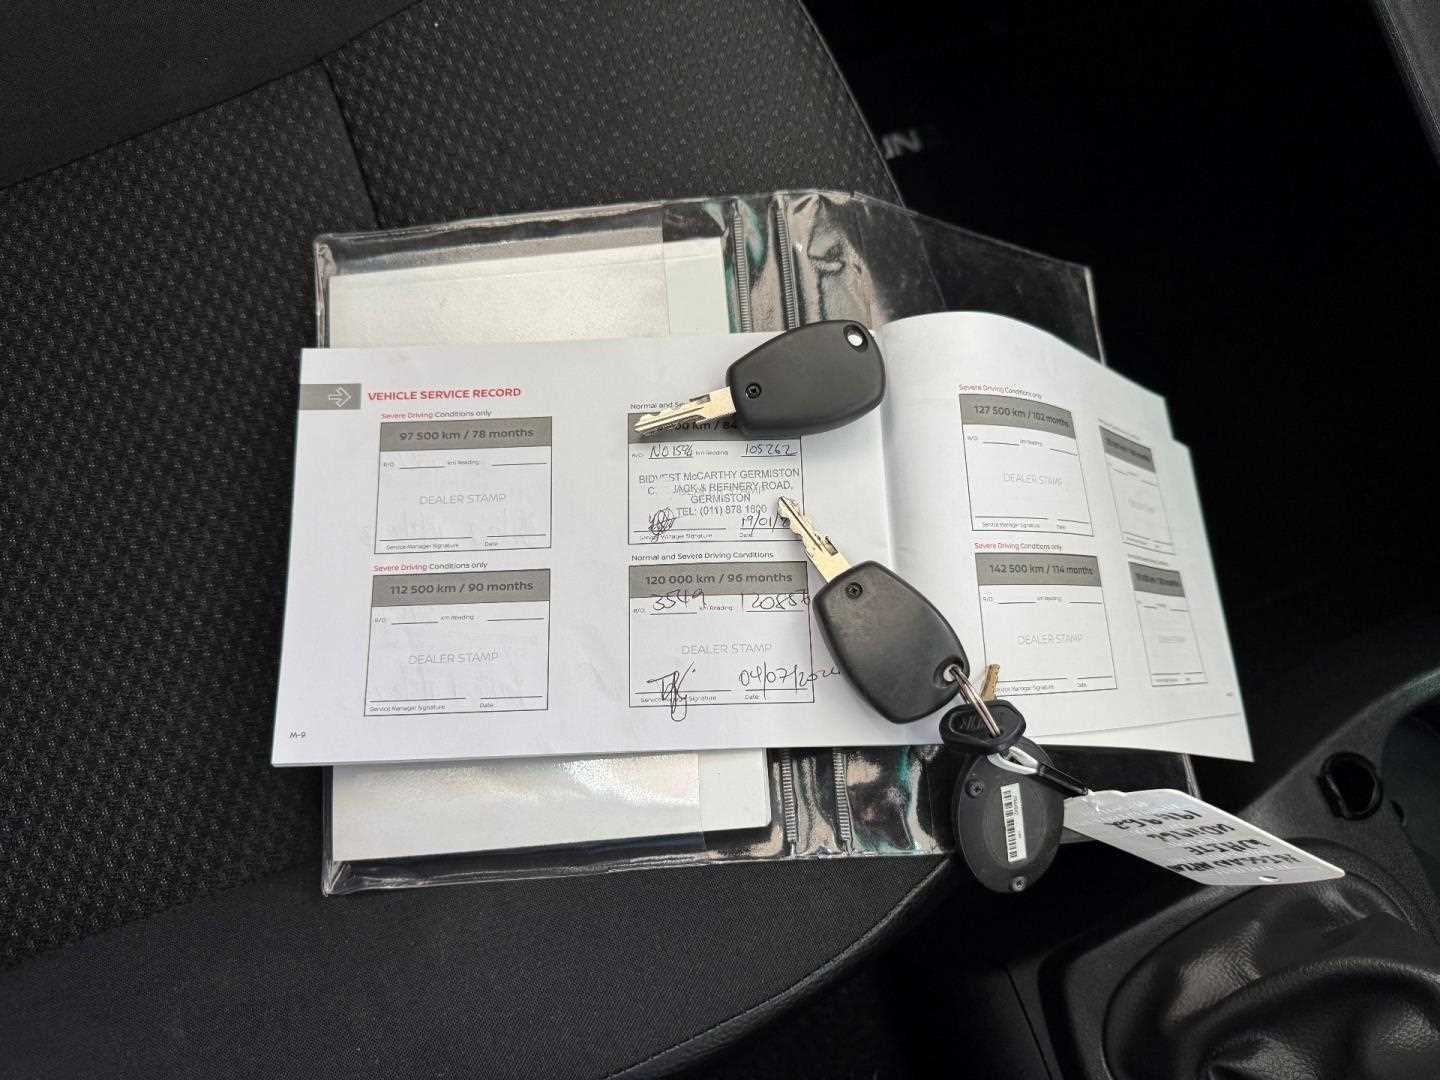 VEHICLE SERVICE RECORD
Severe Driving Conditions only
97 500 km / 78 months
R/O: km Reading:
DEALER STAMP
Service Manager Signature Date:
Severe Driving Conditions only
112 500 km / 90 months
R/O: km Reading:
DEALER STAMP
Service Manager Signature Date:
M-9
Normal and
km / 84
R/O: km Reading: 105262
BIDVEST McCARTHY GERMISTON
JACK & REFINERY ROAD,
GERMISTON
TEL: (011) 878 1600
Service Manager Signature Date: 19/01/
Normal and Severe Driving Conditions
120 000 km / 96 months
R/O: 3549 km Reading:
DEALER STAMP
Signature Date: 04/07/2024
Severe Driving Conditions only
127 500 km / 102 months
R/O: km Reading:
DEALER STAMP
Service Manager Signature Date:
Severe Driving Conditions only
142 500 km / 114 months
R/O: km Reading:
DEALER STAMP
Service Manager Signature Date: